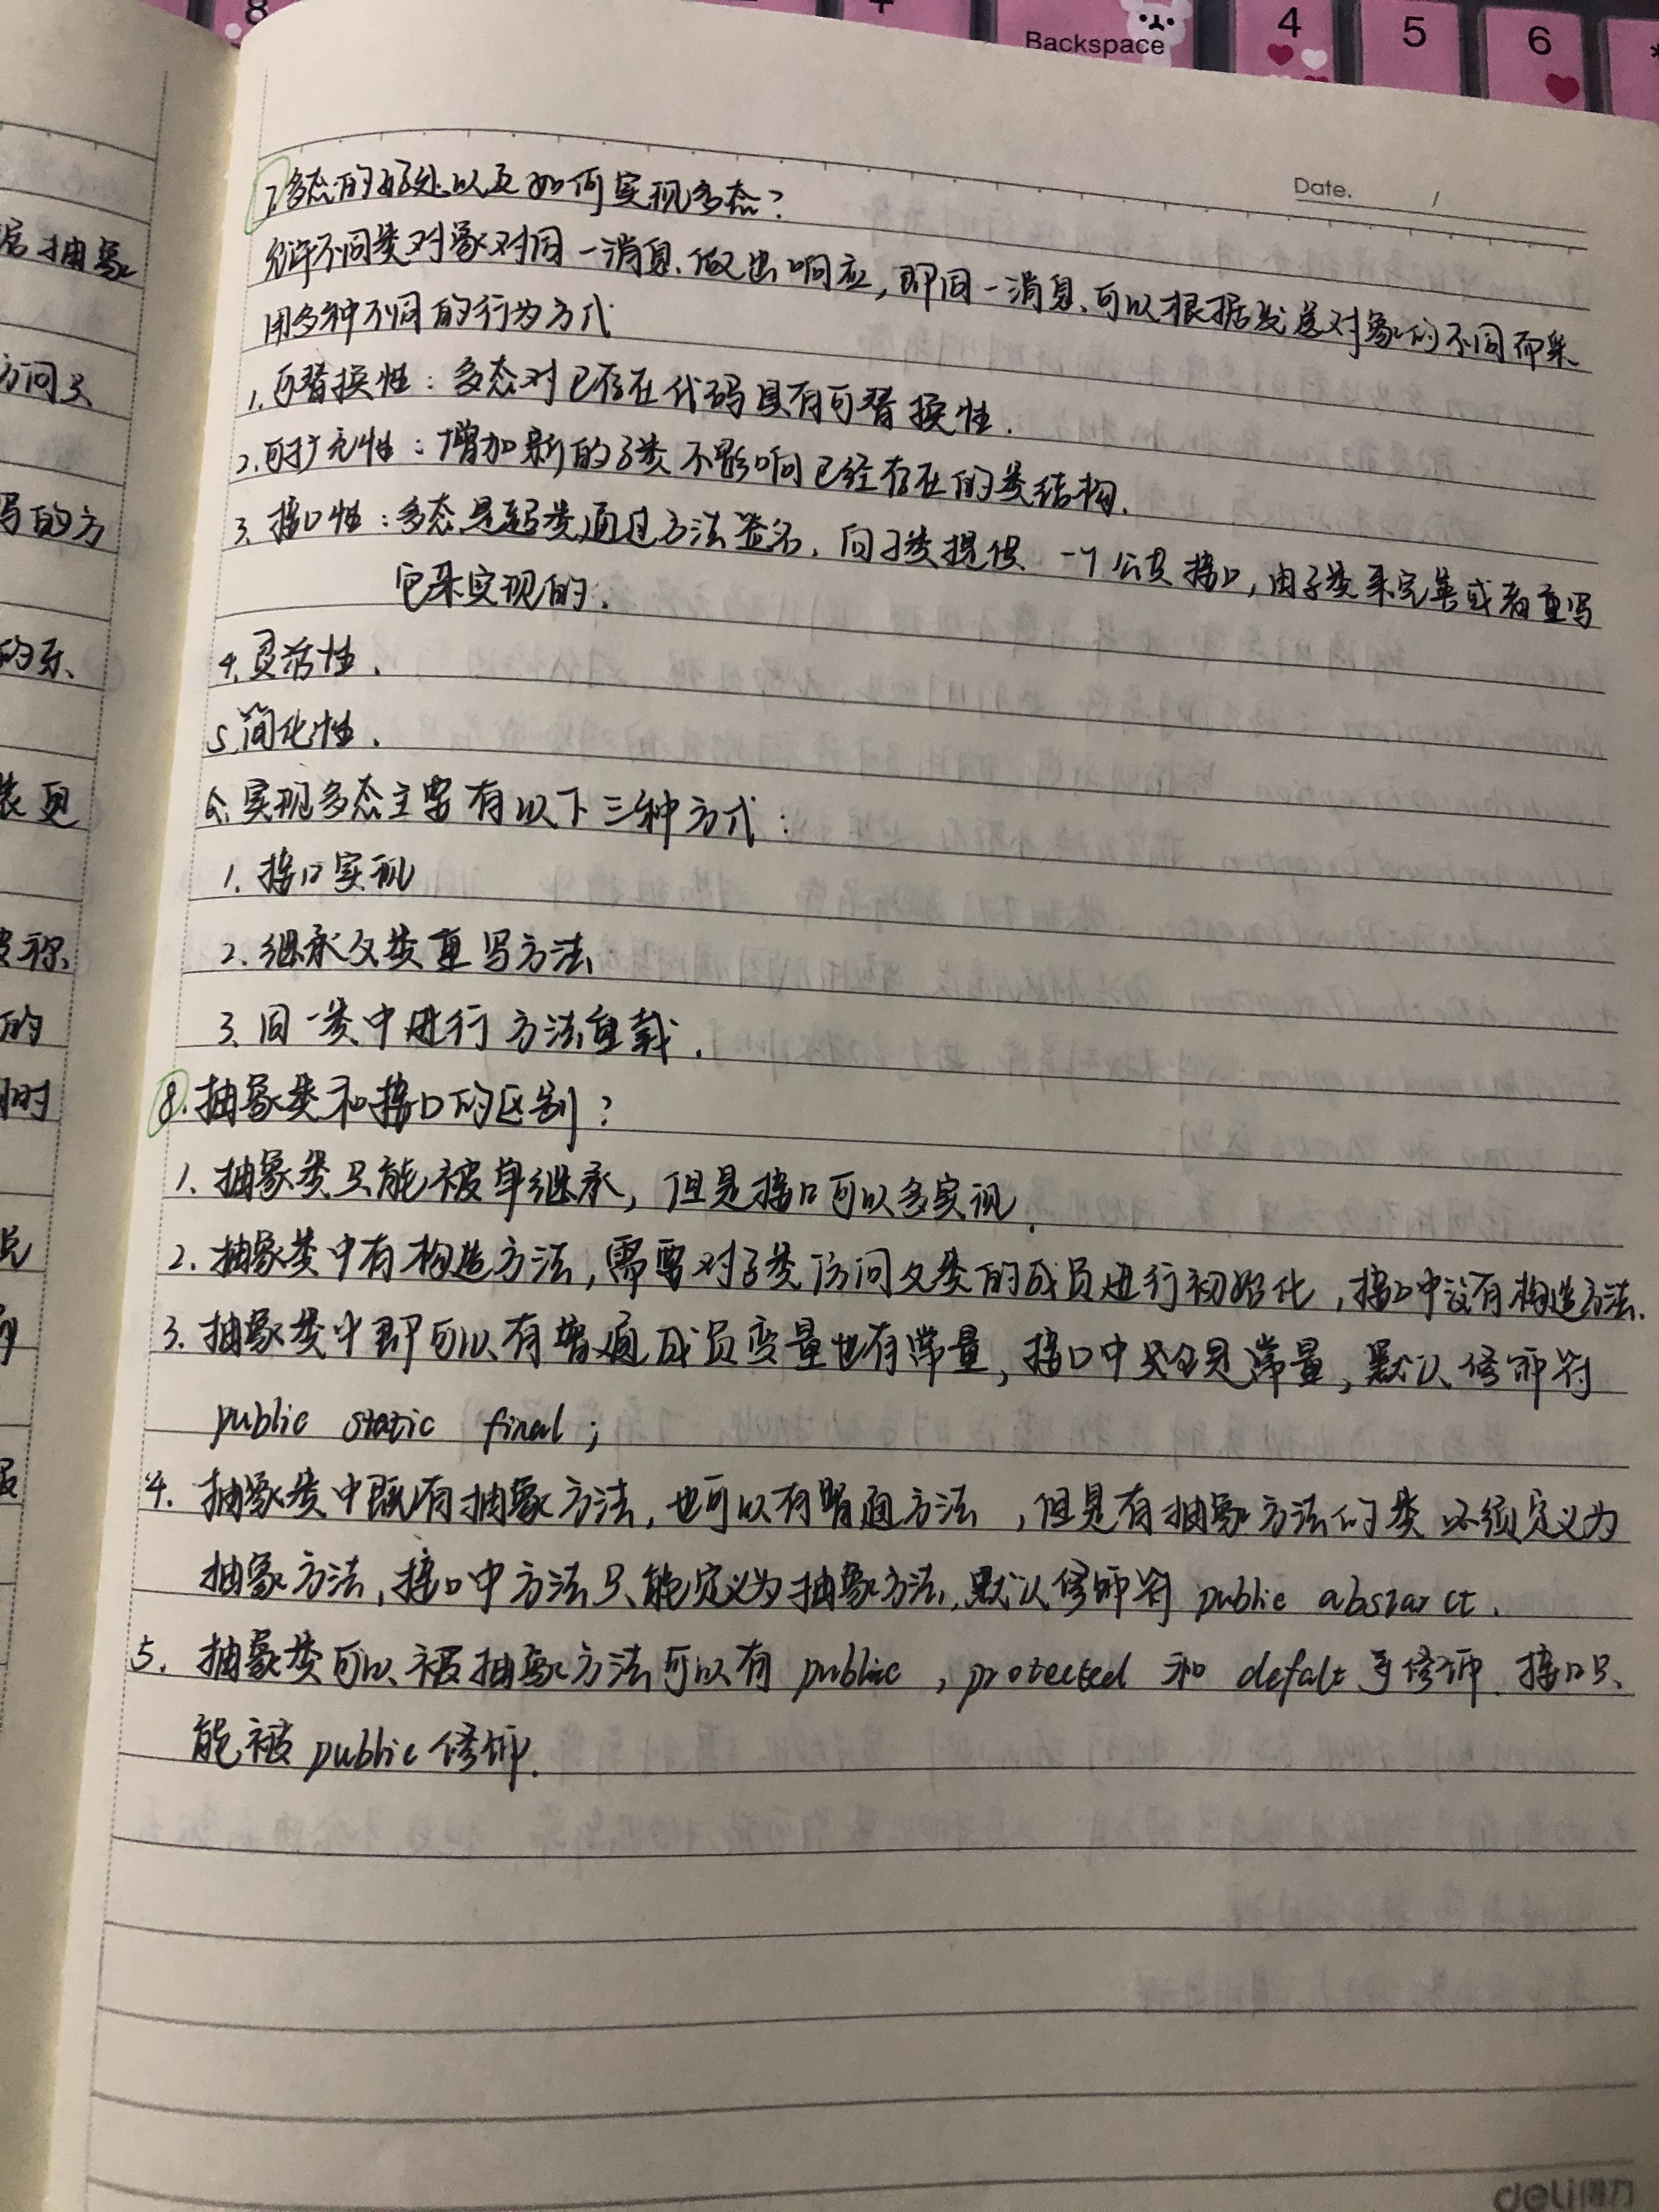 Backspace
4
5
6
8
Date.
7.多态的好处以及如何实现多态?
允许不同类对象对同一消息做出响应,即同一消息可以根据发送对象的不同而采
用多种不同的行为方式
1.可替换性:多态对已存在代码具有可替换性.
2.可扩充性:增加新的子类不影响已经存在的类结构.
3.接口性:多态是超类通过方法签名,向子类提供一个公共接口,由子类来完善或者重写
它来实现的.
4.灵活性.
5.简化性.
6.实现多态主要有以下三种方式:
1.接口实现
2.继承父类重写方法
3.同一类中进行方法重载.
8.抽象类和接口的区别?
1.抽象类只能被单继承,但是接口可以多实现.
2.抽象类中有构造方法,需要对子类访问父类的成员进行初始化,接口中没有构造方法.
3.抽象类中即可以有普通成员变量也有常量,接口中只能是常量,默认修饰符
public static final;
4.抽象类中既有抽象方法,也可以有普通方法,但是有抽象方法的类必须定义为
抽象方法,接口中方法只能定义为抽象方法,默认修饰符 public abstarct.
5.抽象类可以被抽象方法可以有 public,protected 和 defalt 等修饰.接口只
能被 public 修饰.
抽象
方问只
写的方
的
deli得力